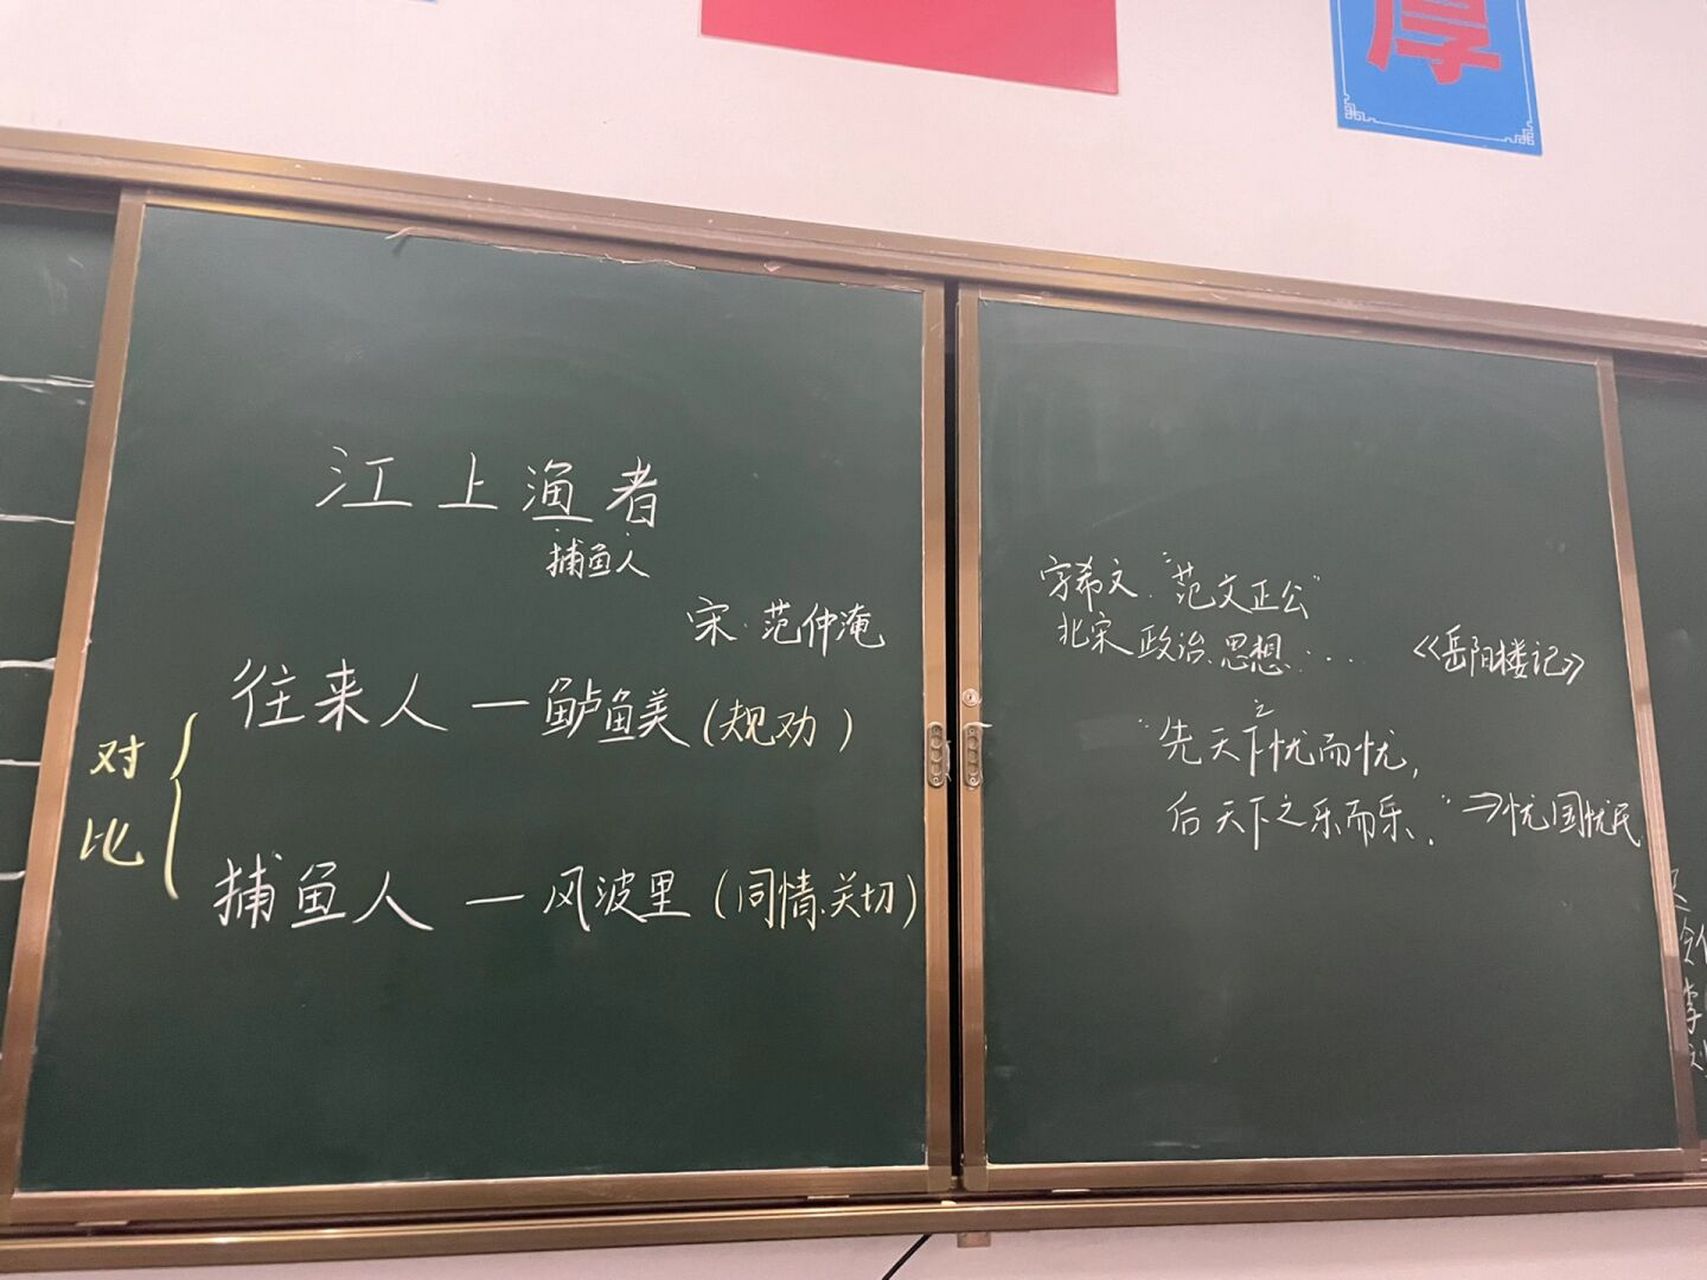 厚
江上渔者
捕鱼人
宋·范仲淹
往来人—鲈鱼美(规劝)
对比
捕鱼人—风波里(同情、关切)
字希文."范文正公"
北宋政治、思想·...
《岳阳楼记》
"先天下之忧而忧,
后天下之乐而乐."⇒忧国忧民
李